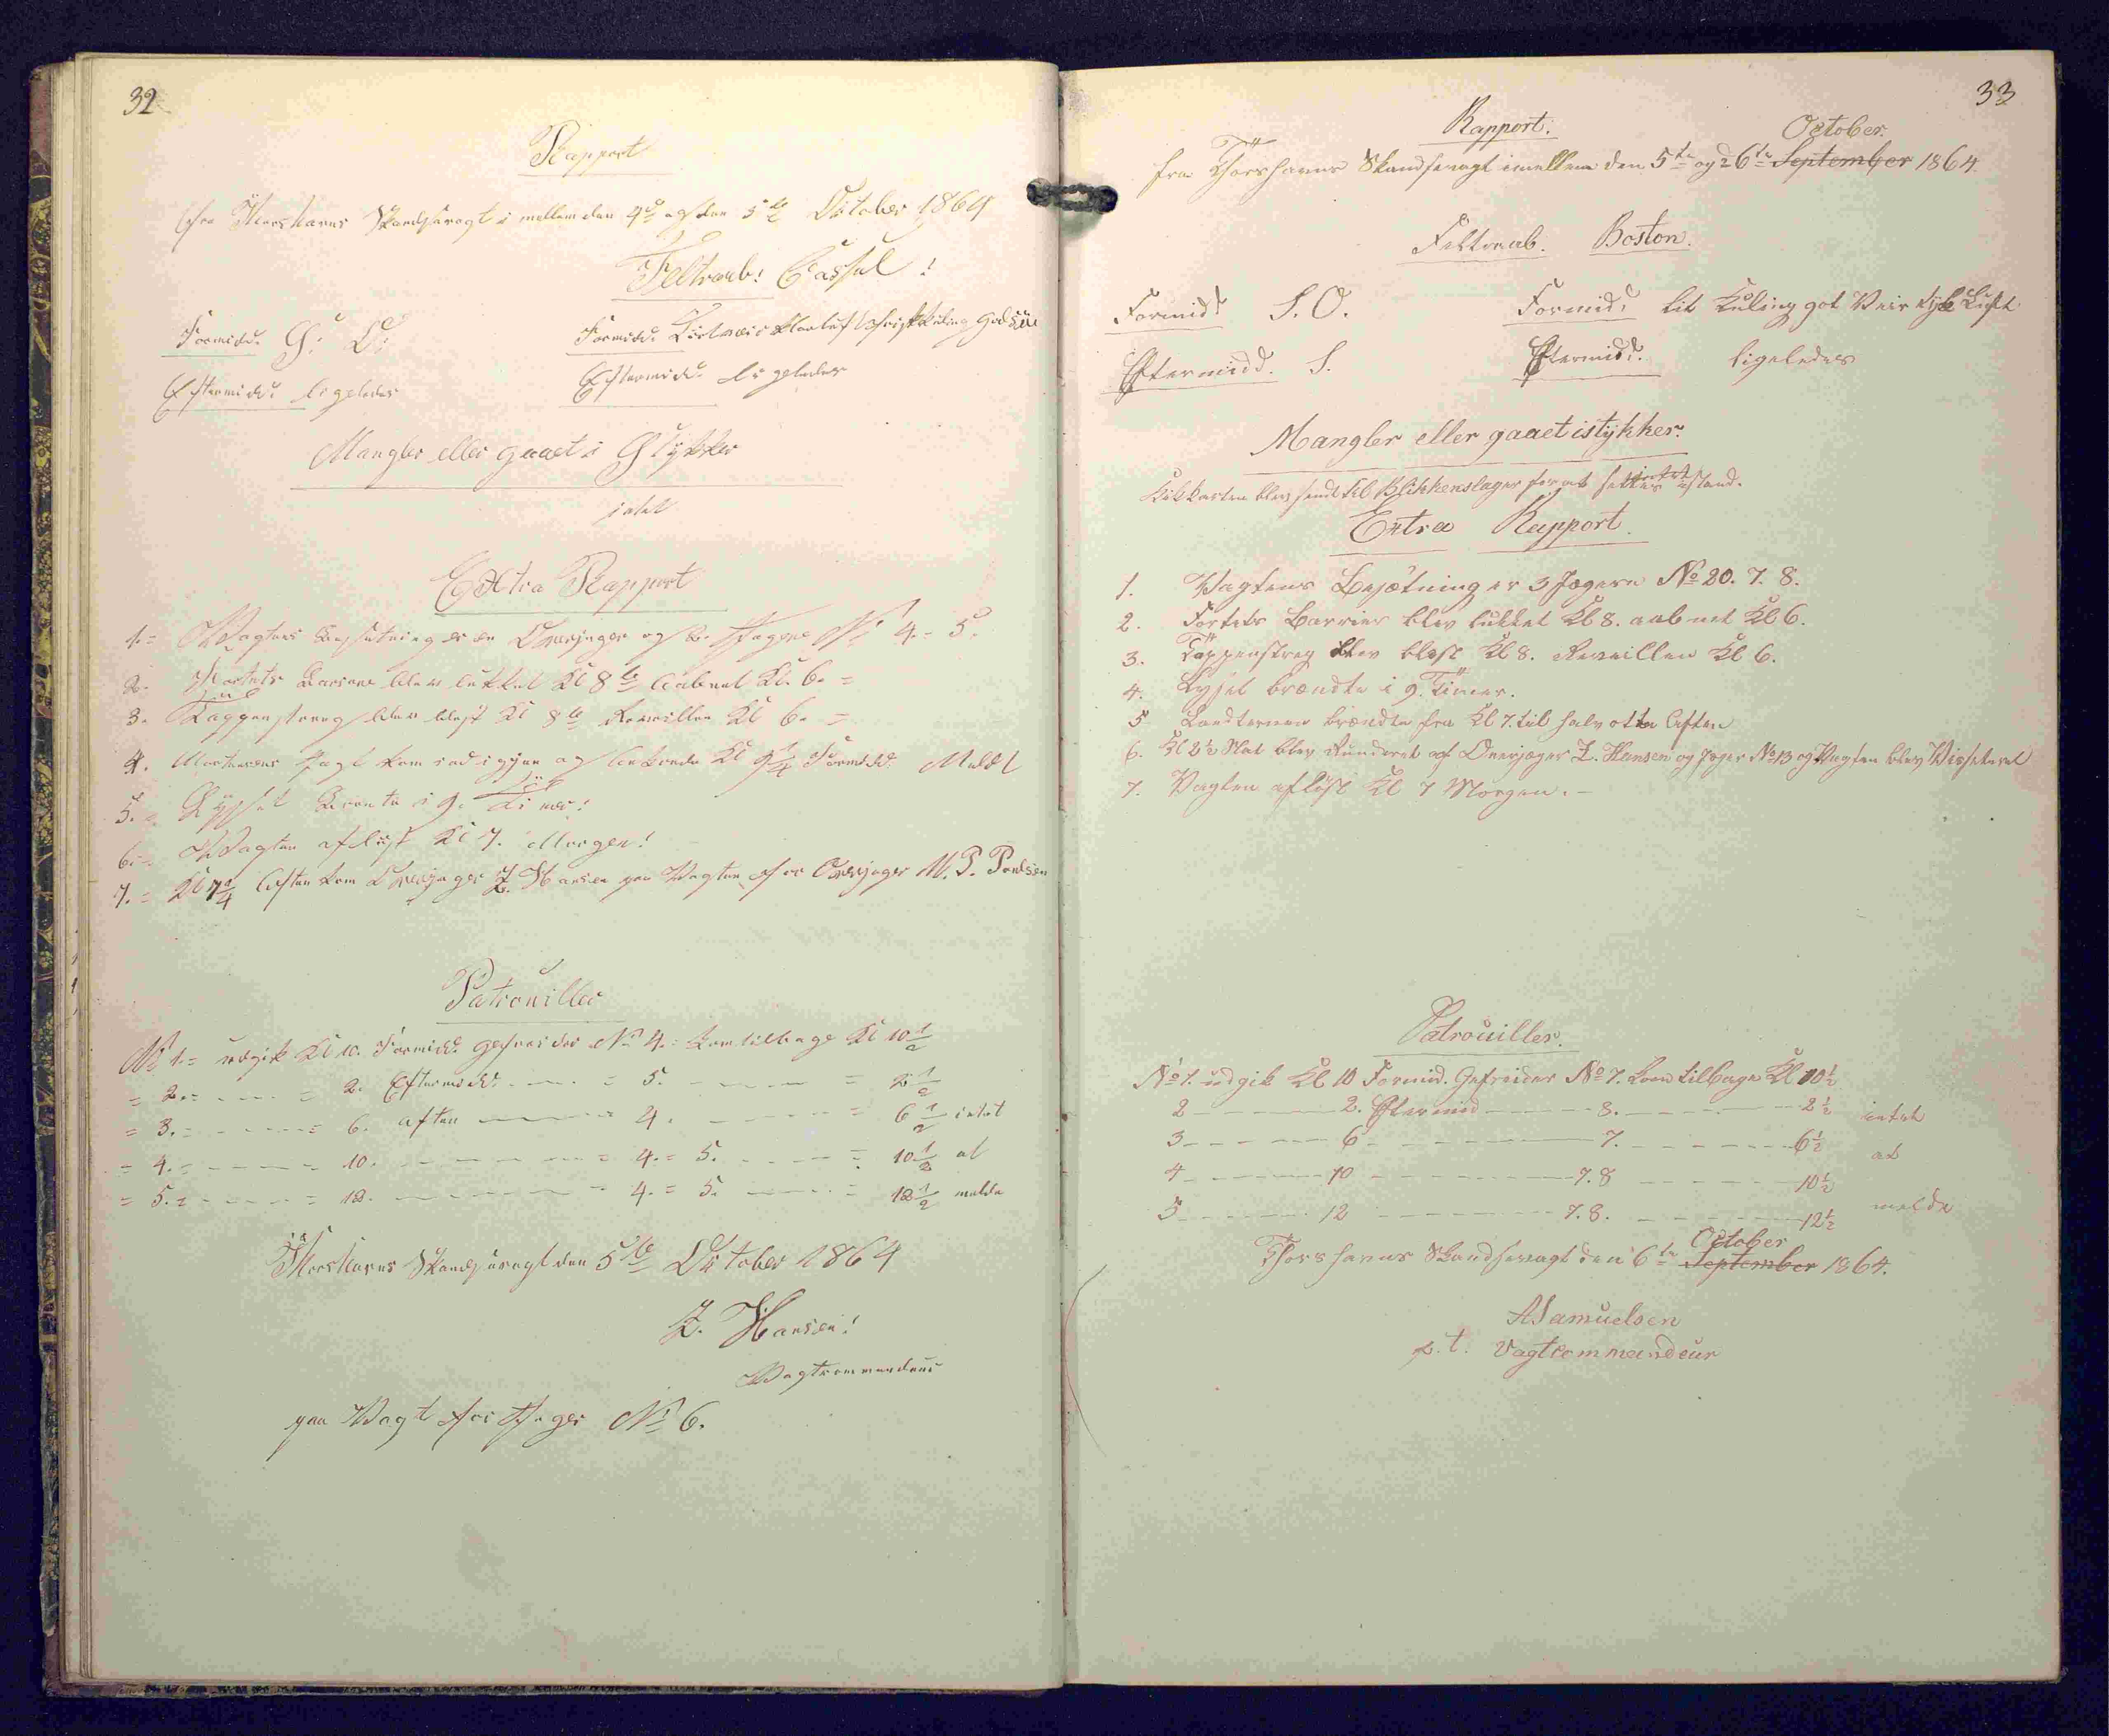 32
Rapport
fra Thorshavns Skandsevagt i mellem den 4de og den 5te October 1864
Feltraab: Cassel!
Formidd. S: O: Formidd. Kuling God
Eftermidd: ligeledes Eftermidd. ligeledes
Mangler eller gaaet i Stykker
intet
Extra Rapport
1.= Vagtens Besetning er en Overjæger og 2. Jægere No 4.= 5.
2. Fortets Barriere blev lukket Kl 8te aabnet Kl. 6. =
3. Tappenstreg blev blæst Kl 8te Reveillen Kl 6. =
4. Mortensens Jagt kom ind igjen og ankrede Kl 9 1/4 Formidd. Meldt
5. = Lyset Brente i 9. Timer!
6. = Vagten afløst Kl 7. Morgen!
7. = Kl 7 3/4 Aften kom Overjæger Z. Hansen paa Vagten for Overjæger M. P. Poulsen
Patrouiller
No 1.= udgik Kl 10. Formidd. Gefreider No 4. = kom tilbage Kl 10 1/2
= 2. = - - - = 2. Eftermidd. - - = 5. - - - = 2 1/2
= 3. = - - - = 6. aften - - 4. - - - = 6 1/2 intet
= 4. = - - - = 10. - - - = 4. = 5. - - - = 10 1/2 at
= 5. = - - - = 12. - - - 4. = 5. - - - = 12 1/2 melde
Thorshavns Skandsevagt den 5te October 1864
Z. Hansen!
Vagtcommandeur
paa Vagt for Jæger No 6.
33
Rapport.
October.
fra Thorshavns Skandsevagt imellem den 5te og d 6te September 1864.
Feltraab. Boston.
Formidd S. O. Formid. lit Kuling got Veir tyk Luft
Eftermidd. S. Eftermidd. ligeledes
Mangler eller gaaet istykker.
intet
Kikkerten blev sendt til Blikkenslager for at settes istand.
Extra Rapport.
1. Vagtens Besætning er 3 Jægere No 20. 7. 8.
2. Fortets Barrier blev lukket Kl 8. aabnet Kl 6.
3. Tappenstreg blev blest Kl 8. Reveillen Kl 6.
4. Lyset brændte i 9. Timer.
5 Landternen brændte fra Kl 7. til halv otte Aften
6. Kl 2 1/2 Nat blev Runderet af Overjæger Z. Hansen og Jæger No 13 og Vagten blev Visiteret
7. Vagten afløst Kl 7 Morgen. -
Patrouiller.
No 1. udgik Kl 10 Formid. Gefreider No 7. kom tilbage Kl 10 1/2
2 - - - 2. Eftermid - - - 8. - - - 2 1/2 intet
3 - - - 6 - - - 7. - - - 6 1/2 at
4 - - - 10 - - - 7. 8 - - - 10 1/2
5 - - - 12 - - - 7. 8. - - - 12 1/2 melde
October
Thorshavns Skandsevagt den 6te September 1864.
A Samuelsen
p. t. Vagtcommandeur